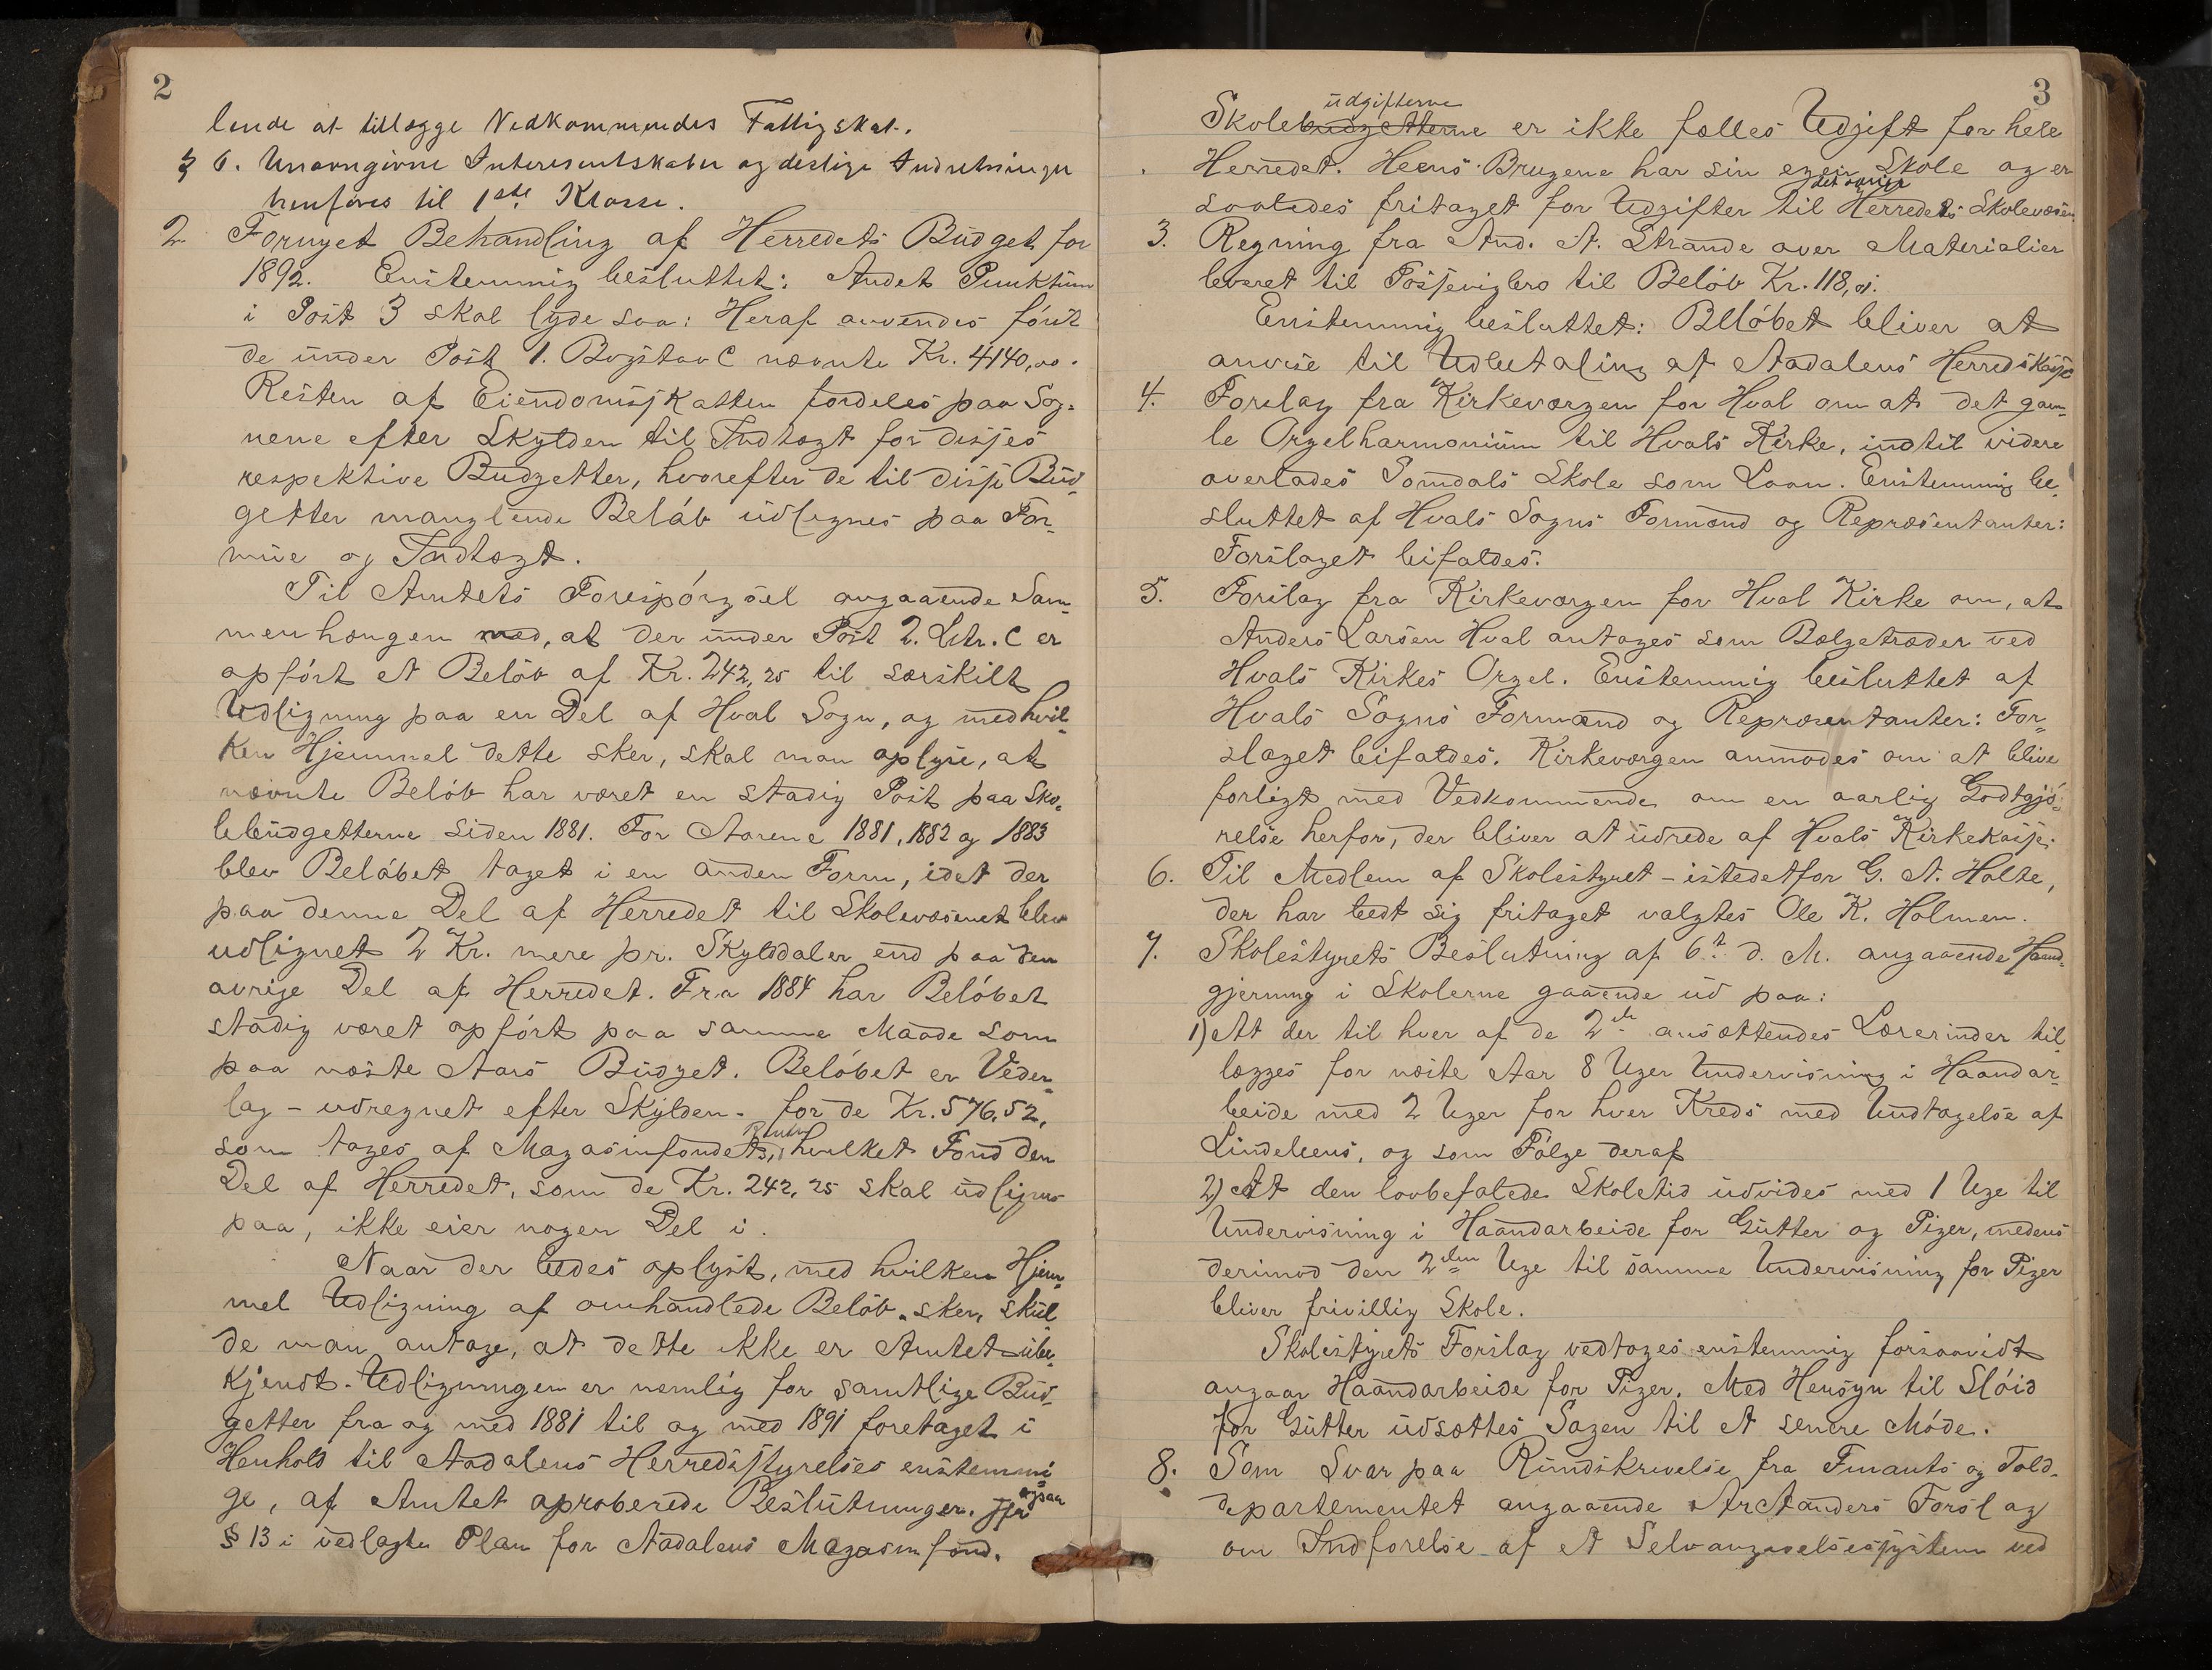 2
lende at tillægge Vedkommendes Fattigskat.
§ 6. Unavngivne Interesentskaber og deslige Indretninger
henføres til 1ste Klasse.
2 Fornyet Behandling af Herredets Budget for
1892. Enstemmig besluttet: Andet Punktum
i Post 3 skal lyde saa: Heraf anvendes først
de under Post 1. Bogstav C nævnte Kr. 4140,00.
Resten af Eiendomsskatten fordeles paa Sog-
nene efter Skylden til Indtægt for disses
respektive Budgetter, hvorefter de til disse Bud-
getter manglende Beløb udlignes paa For-
mue og Indtægt.
Til Amtets Forespørgsel angaaende Sam-
menhængen med, at der under Post 2. Litr. C er
opført et Beløb af Kr. 242,25 til særskilt
Udligning paa en Del af Hval Sogn, og med hvil-
ken Hjemmel dette sker, skal man oplyse, at
nævnte Beløb har været en stadig Post paa Sko-
lebudgetterne siden 1881. For Aarene 1881, 1882 og 1883
blev Beløbet taget i en anden Form, idet der
paa denne Del af Herredet til Skolevæsenet blev
udlignet 2 Kr. mere pr. Skylddaler end paa den
øvrige Del af Herredet. Fra 1884 har Beløbet
stadig været opført paa samme Maade som
paa næste Aars Budget. Beløbet er Veder-
lag - udregnet efter Skylden - for de Kr. 576,52,
som tages af Magasinfondets Renter, hvilket Fond den
Del af Herredet, som de Kr. 242,25 skal udlignes
paa, ikke eier nogen Del i.
Naar der bedes oplyst, med hvilken Hjem-
mel Udligning af omhandlede Beløb sker, skul-
de man antage, at dette ikke er Amtet ube-
kjendt. Udligningen er nemlig for samtlige Bud-
getter fra og med 1881 til og med 1891 foretaget i
Henhold til Aadalens Herredsstyrelses enstemmi-
ge, af Amtet aproberede Beslutninger. Jfr ogsaa
§ 13 i vedlagte Plan for Aadalens Magasinfond.
3
Skolebudgetterne udgifterne er ikke fælles Udgift for hele
Herredet. Heens Brugene har sin egen Skole og er
saaledes fritaget for Udgifter til det øvrige Herredets Skolevæsen.
3. Regning fra And. A. Strande over Materialier
leveret til Fossevigbro til Beløb Kr. 118,01.
Enstemmig besluttet: Beløbet bliver at
anvise til Udbetaling af Aadalens Herredskasse
4. Forslag fra Kirkeværgen for Hval om at det gam-
le Orgelharmonium til Hvals Kirke, indtil videre
overlades Somdals Skole som Laan. Enstemmig be-
sluttet af Hvals Sogns Formænd og Repræsentanter:
Forslaget bifaldes.
5. Forslag fra Kirkeværgen for Hval Kirke om, at
Anders Larsen Hval antages som Bælgetræder ved
Hvals Kirkes Orgel. Enstemmig besluttet af
Hvals Sogns Formænd og Repræsentanter: For-
slaget bifaldes. Kirkeværgen anmodes om at blive
forligt med Vedkommende om en aarlig Godtgjø-
relse herfor, der bliver at udrede af Hvals Kirkekasse.
6. Til Medlem af Skolestyret - istedetfor G. A. Holte,
der har bedt sig fritaget valgtes Ole K. Holmen.
7. Skolestyrets Beslutning af 6te d. M. angaaende Haand-
gjerning i Skolerne gaaende ud paa:
1) At der til hver af de 2de ansættendes Lærerinder til-
lægges for næste Aar 8 Uger Undervisning i Haandar-
beide med 2 Uger for hver Kreds med Undtagelse af
Lindeleens, og som Følge deraf
2) At den lovbefalede Skoletid udvides med 1 Uge til
Undervisning i Haandarbeide for Gutter og Piger, medens
derimod den 2den Uge til samme Undervisning for Piger
bliver frivillig Skole.
Skolestyrets Forslag vedtages enstemmig forsaavidt
angaar Haandarbeide for Piger. Med Hensyn til Sløid
for Gutter udsættes Sagen til et senere Møde.
8. Som Svar paa Rundskrivelse fra Finants og Told-
departementet angaaende Arctanders Forslag
om Indførelse af et Selvangivelsessystem ved